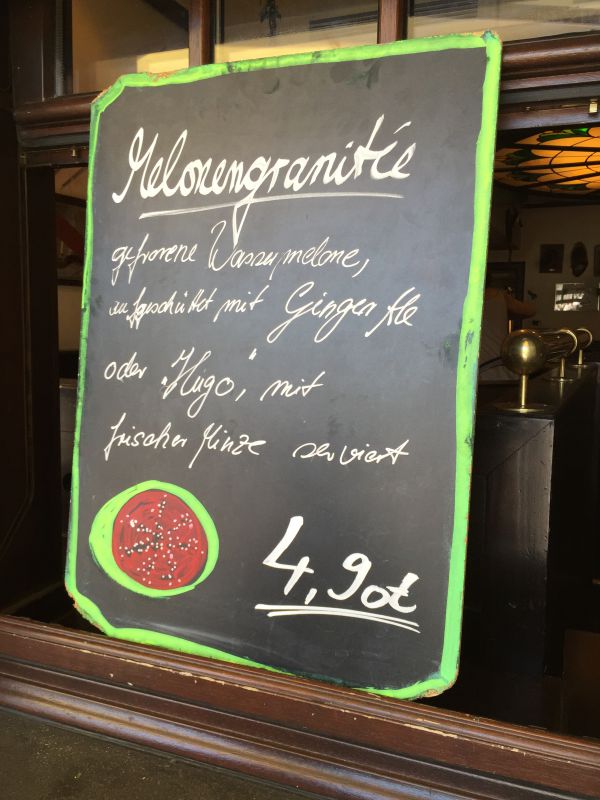 Melonengranitée
gefrorene Wassermelone,
aufgeschüttet mit Ginger Ale
oder „Hugo“, mit
frischer Minze serviert
4,90€